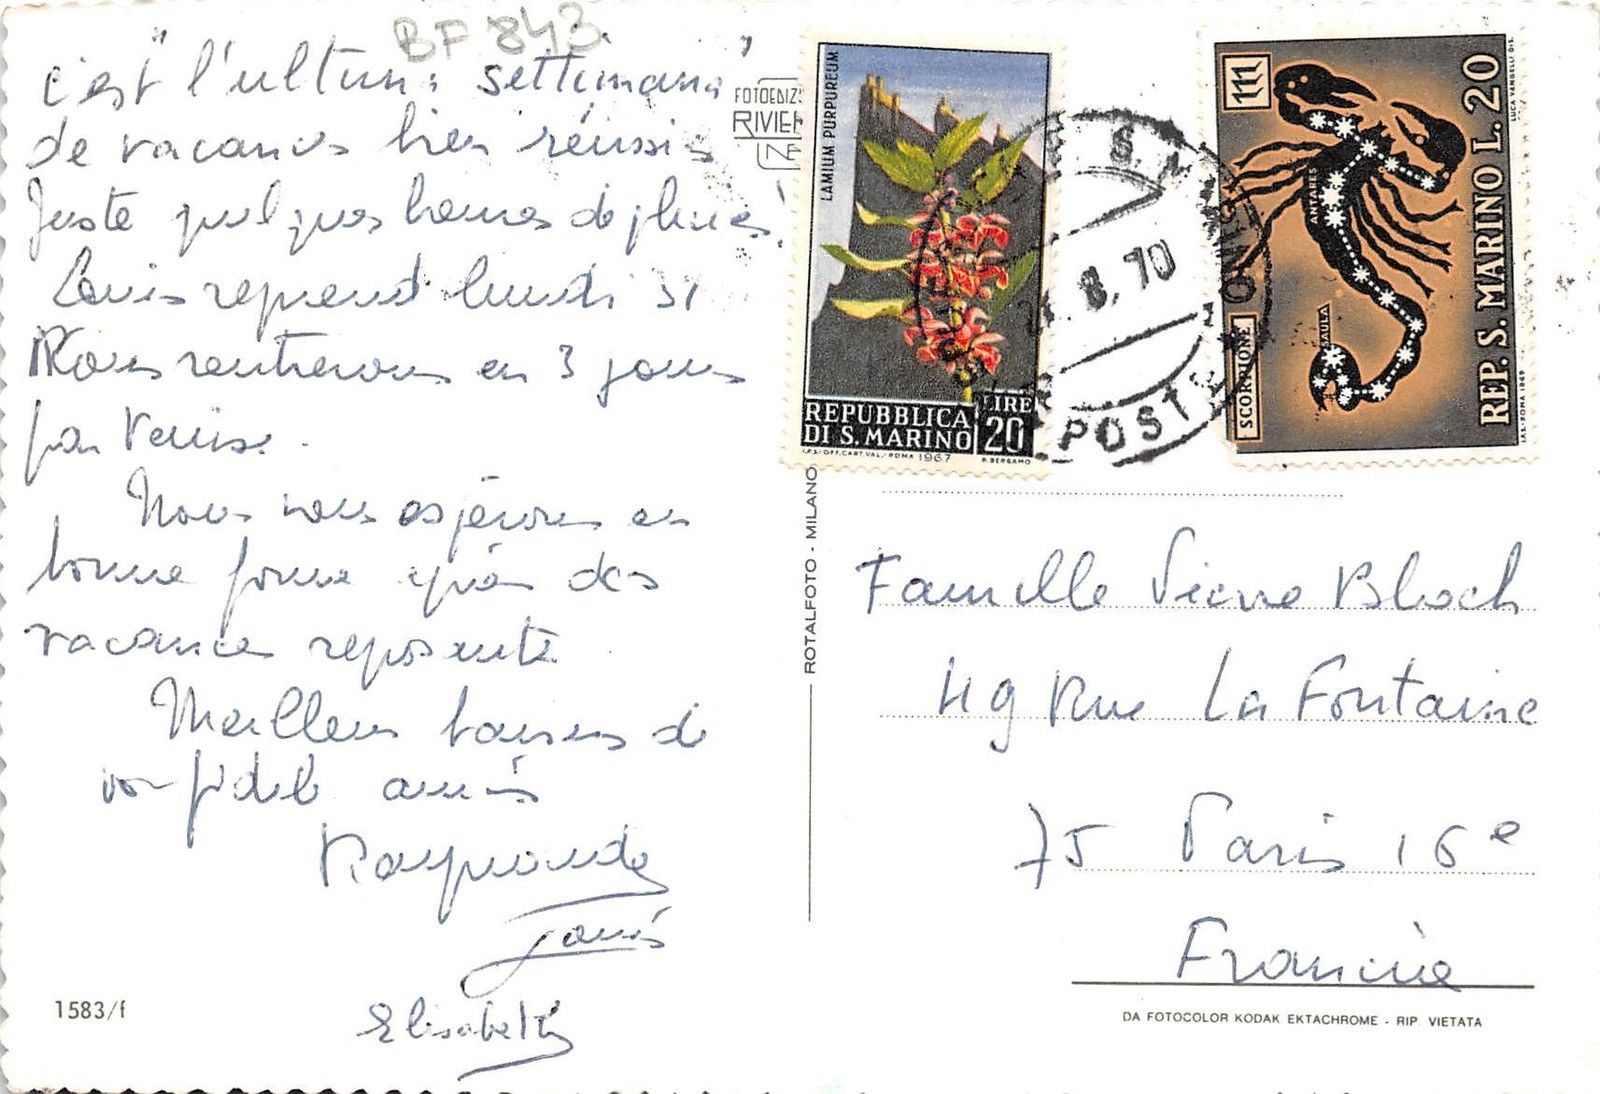 BF 843
c'est "l'ultima settimana"
de vacances bien réussies
Juste quelques heures de pluies!
Louis reprend lundi 31
Nous rentrerons en 3 jours
par Venise.
Nous vous espérons en
bonne forme après des
vacances reposantes.
Meilleurs baisers de
vos fidèles amis
Raymonde
Louis
Elisabeth
1583/f
FOTOEDIZ
RIVIE
ROTALFOTO - MILANO
LAMIUM PURPUREUM
REPUBBLICA
DI S. MARINO
LIRE
20
I.P.S.-OFF.CART.VAL.-ROMA 1967
R. BERGAMO
8.70
POST
m
SCORPIONE
ANTARES
SAULA
REP. S. MARINO L. 20
LUCA VANGELLI DIS.
I.P.S.-ROMA 1969
Famille Pierre Bloch
49 Rue La Fontaine
75 Paris 16e
Francia
DA FOTOCOLOR KODAK EKTACHROME - RIP. VIETATA